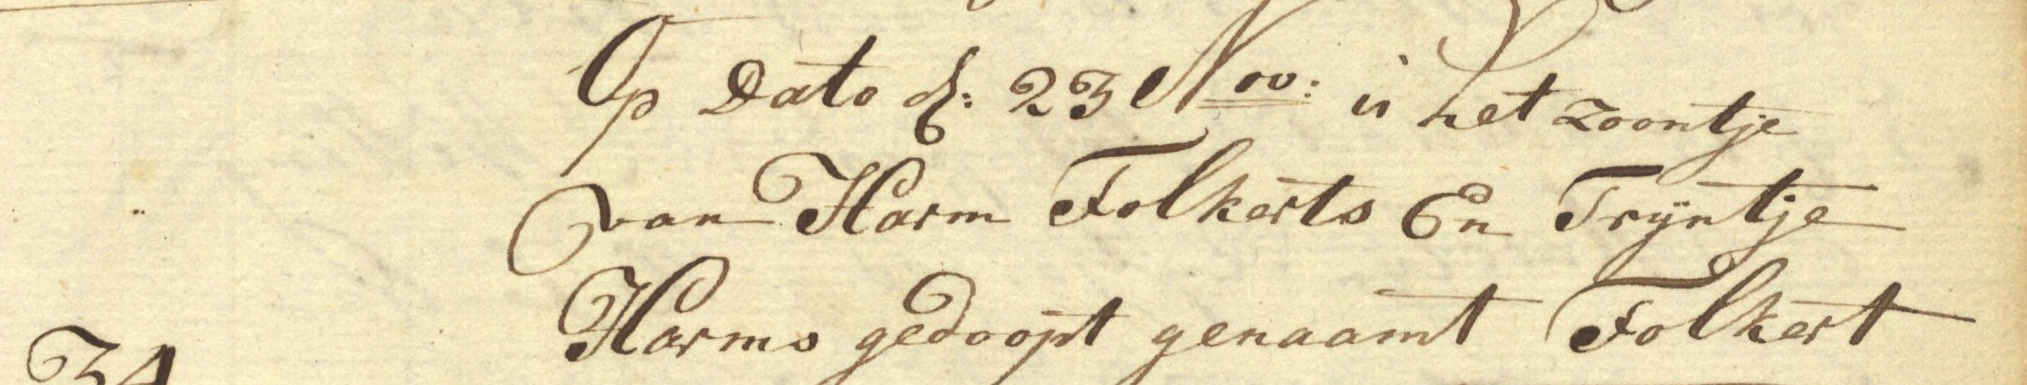 Op Dato d: 23 Nov: is het zoontje
van Harm Folkerts En Trijntje
Harms gedoopt genaamt Folkert
34